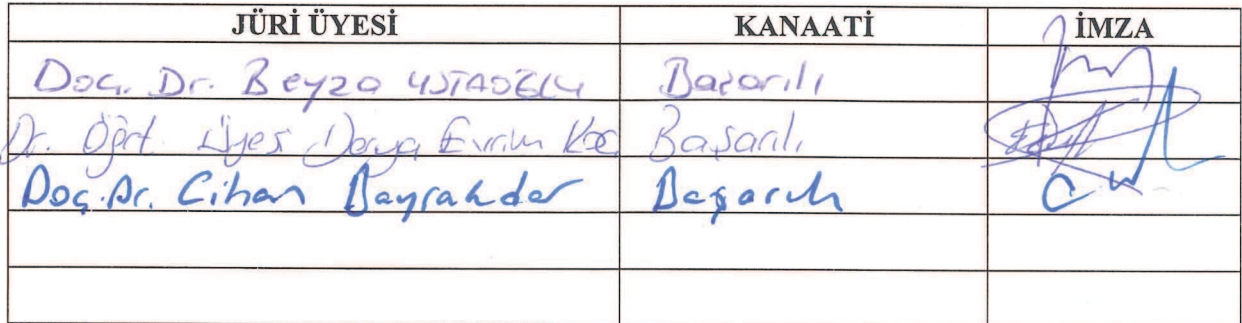 JÜRİ ÜYESİ KANAATİ İMZA
Doç. Dr. Beyza USTAOĞLU Başarılı
Dr. Öğrt. Üyesi Derya Evrim Koç Başarılı
Doç. Dr. Cihan Bayrakdar Başarılı